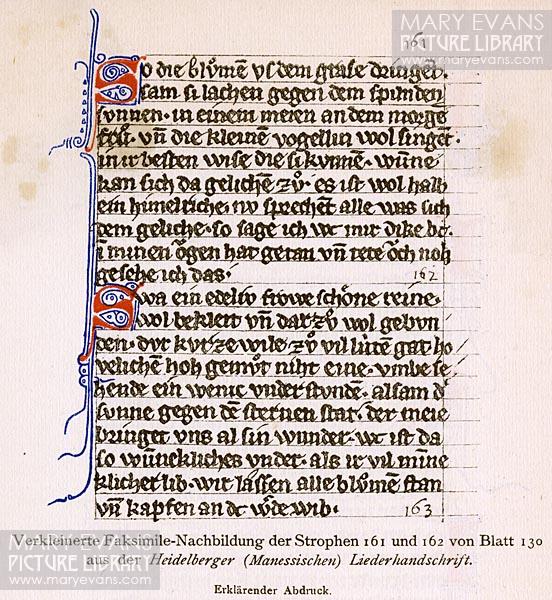 MARY EVANS
PICTURE LIBRARY
www.maryevans.com
161
So die blůmē vs dem grase dringēt.
sam si lachen gegen dem spilnden
sunnen. in einem meien an dem morgē
frů. vn̄ die kleinen vogellin wol singēt.
in ir besten wise die si kunnē. wūne
kan sich da gelichē zů. es ist wol halb
ein himelriche. nv sprechēt alle was sich
dem geliche. so sage ich wc mir dike bc
ī minen ǒgen hat getan vn̄ tete ǒch noh
gesehe ich das.
162
Swa ein edeliv frowe schōne reine.
wol bekleit vn̄ dar zů wol gebun
den. dvr kurze wile. zů vil lúten gat ho
velichen hoh gemůt niht eine. vmbe se
hende ein wenic vnder stunden. alsam d'
sunne gegen dē sternen stat. der meie
bringet vns al sin wunder. wc ist da
so wūnekliches vnder. als ir vil mīne
klicher lib. wir lassen alle blůmē stan
vn̄ kapfen an dc w'de wib.
163
Verkleinerte Faksimile-Nachbildung der Strophen 161 und 162 von Blatt 130
aus der Heidelberger (Manessischen) Liederhandschrift.
Erklärender Abdruck.
MARY EVANS
PICTURE LIBRARY
www.maryevans.com